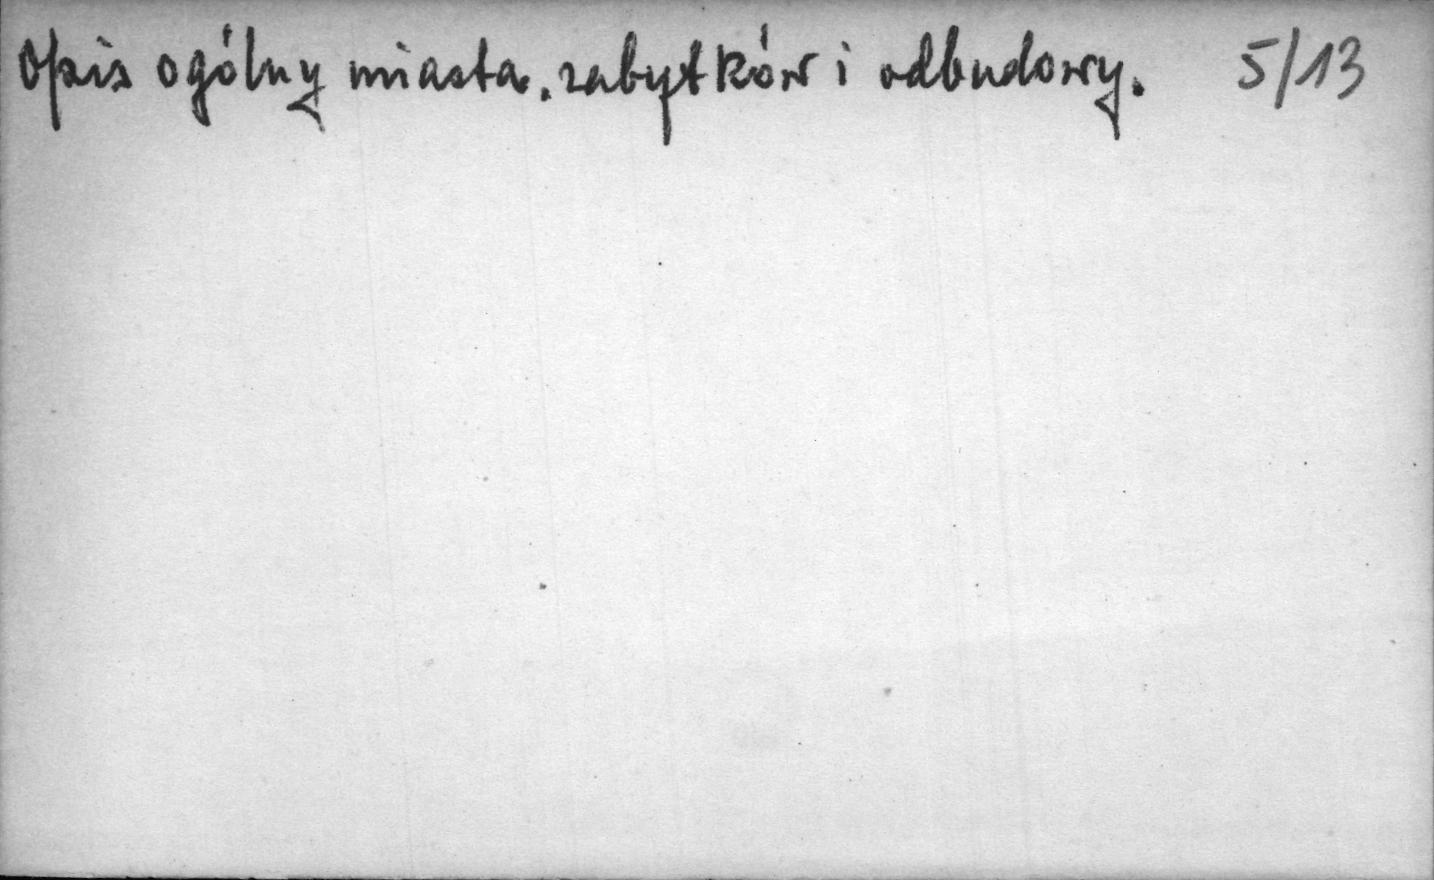 Opis ogólny miasta, zabytków i odbudowy. 5/13